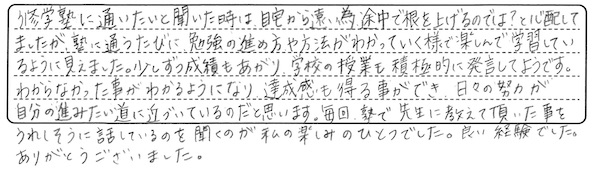 修学塾に通いたいと聞いた時は、自宅から遠い為、途中で根を上げるのでは?と心配して
ましたが、塾に通うたびに、勉強の進め方や方法がわかっていく様で楽しんで学習してい
るように見えました。少しずつ成績もあがり、学校の授業も積極的に発言してようです。
わからなかった事がわかるようになり、達成感も得る事ができ、日々の努力が
自分の進みたい道に近づいているのだと思います。毎回、塾で先生に教えて頂いた事を
うれしそうに話しているのを聞くのが私の楽しみのひとつでした。良い経験でした。
ありがとうございました。